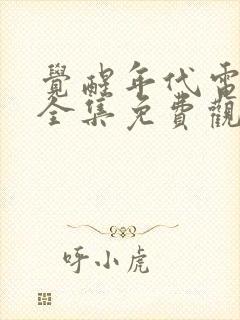 覺醒年代電
全集免費觀
呼小虎